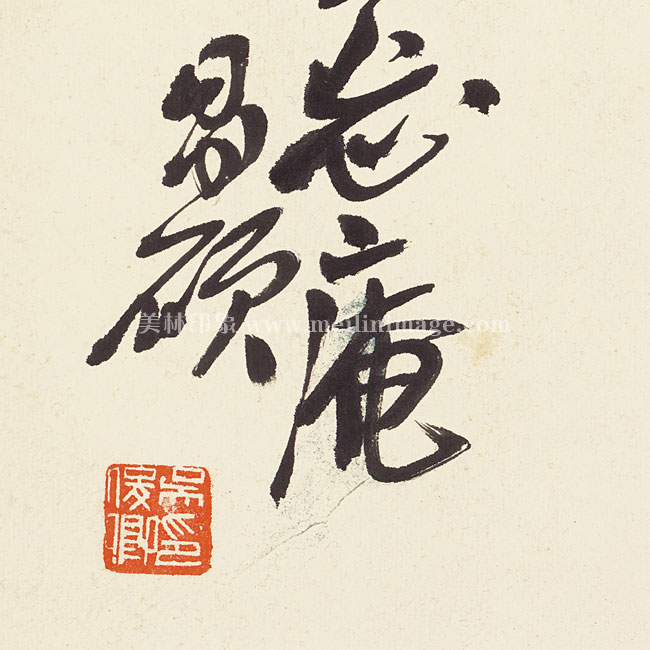 忘庵
昌碩
吳俊卿印
美林印象 www.meilinimage.com